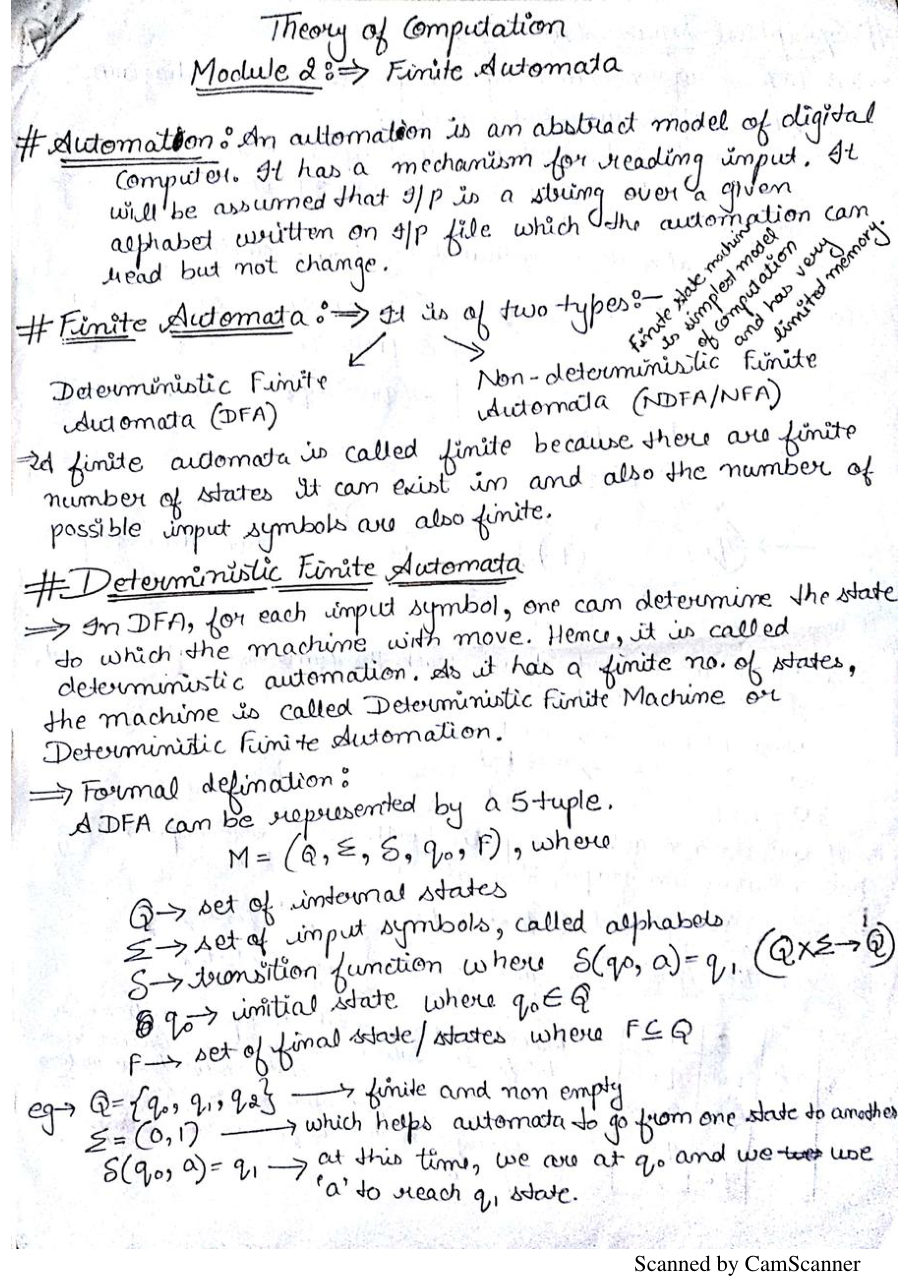 Theory of Computation
Module 2 :⇒ Finite Automata
# Automation : An automation is an abstract model of digital
Computer. It has a mechanism for reading input. It
will be assumed that I/P is a string over a given
alphabet written on I/P file which the automation can
read but not change.
# Finite Automata :⇒ It is of two types:-
Finite state machine
is simplest model
of computation
and has very
limited memory.
Deterministic Finite
Automata (DFA)
Non-deterministic Finite
Automata (NDFA/NFA)
⇒ A finite automata is called finite because there are finite
number of states it can exist in and also the number of
possible input symbols are also finite.
# Deterministic Finite Automata
⇒ In DFA, for each input symbol, one can determine the state
to which the machine with move. Hence, it is called
deterministic automation. As it has a finite no. of states,
the machine is called Deterministic Finite Machine or
Deterministic Finite Automation.
⇒ Formal defination :
A DFA can be represented by a 5-tuple.
M = (Q, Σ, δ, q₀, F), where
Q → set of internal states
Σ → set of input symbols, called alphabets
δ → transition function where δ(q₀, a) = q₁ (Q×Σ→Q)
q₀ → initial state where q₀ ∈ Q
F → set of final state/states where F ⊆ Q
eg→ Q = {q₀, q₁, q₂} → finite and non empty
Σ = (0, 1) → which helps automata to go from one state to another
δ(q₀, a) = q₁ → at this time, we are at q₀ and we use
'a' to reach q₁ state.
Scanned by CamScanner